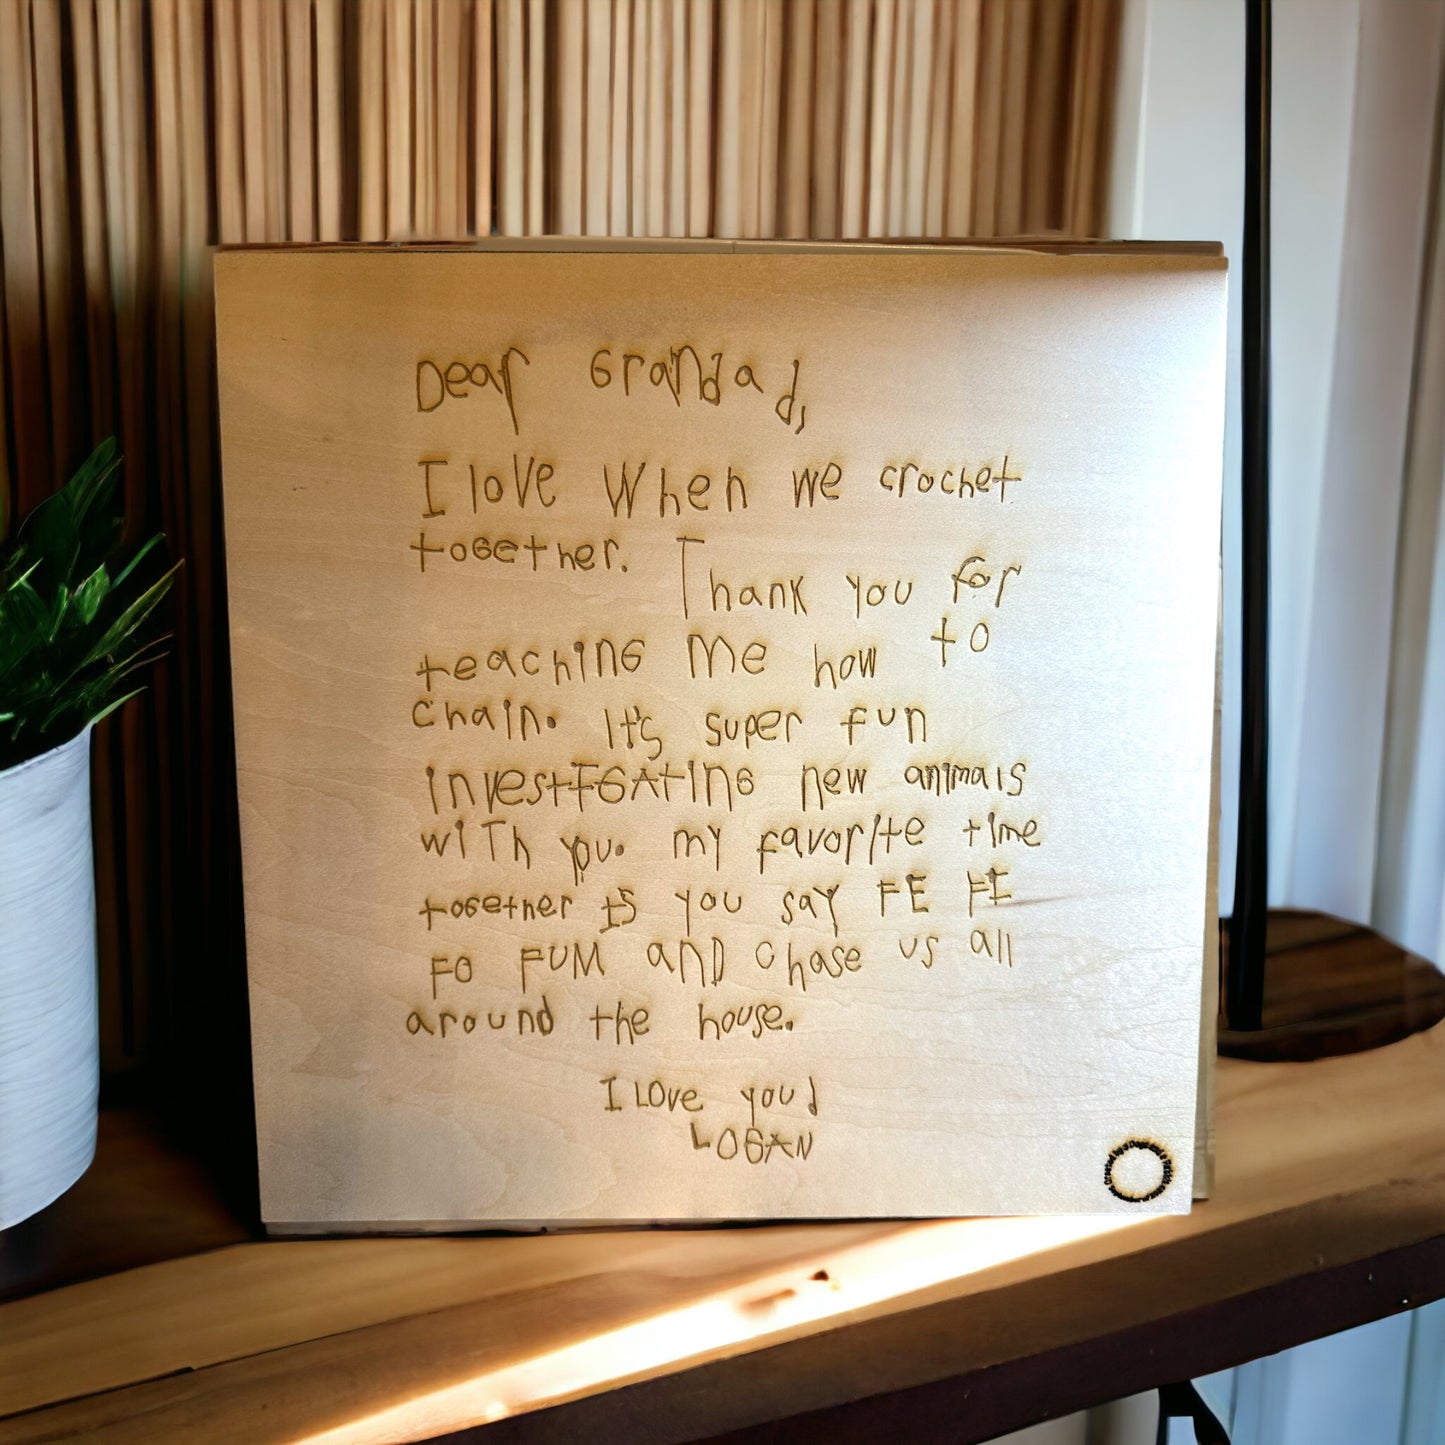 Dear Grandad,
I love When we crochet
together. Thank you for
teaching me how to
chain. It's super fun
investIGAting new animals
with you. my favorite time
together is you say FE FI
FO FUM AND chase us all
around the house.
I Love you!
LOGAN